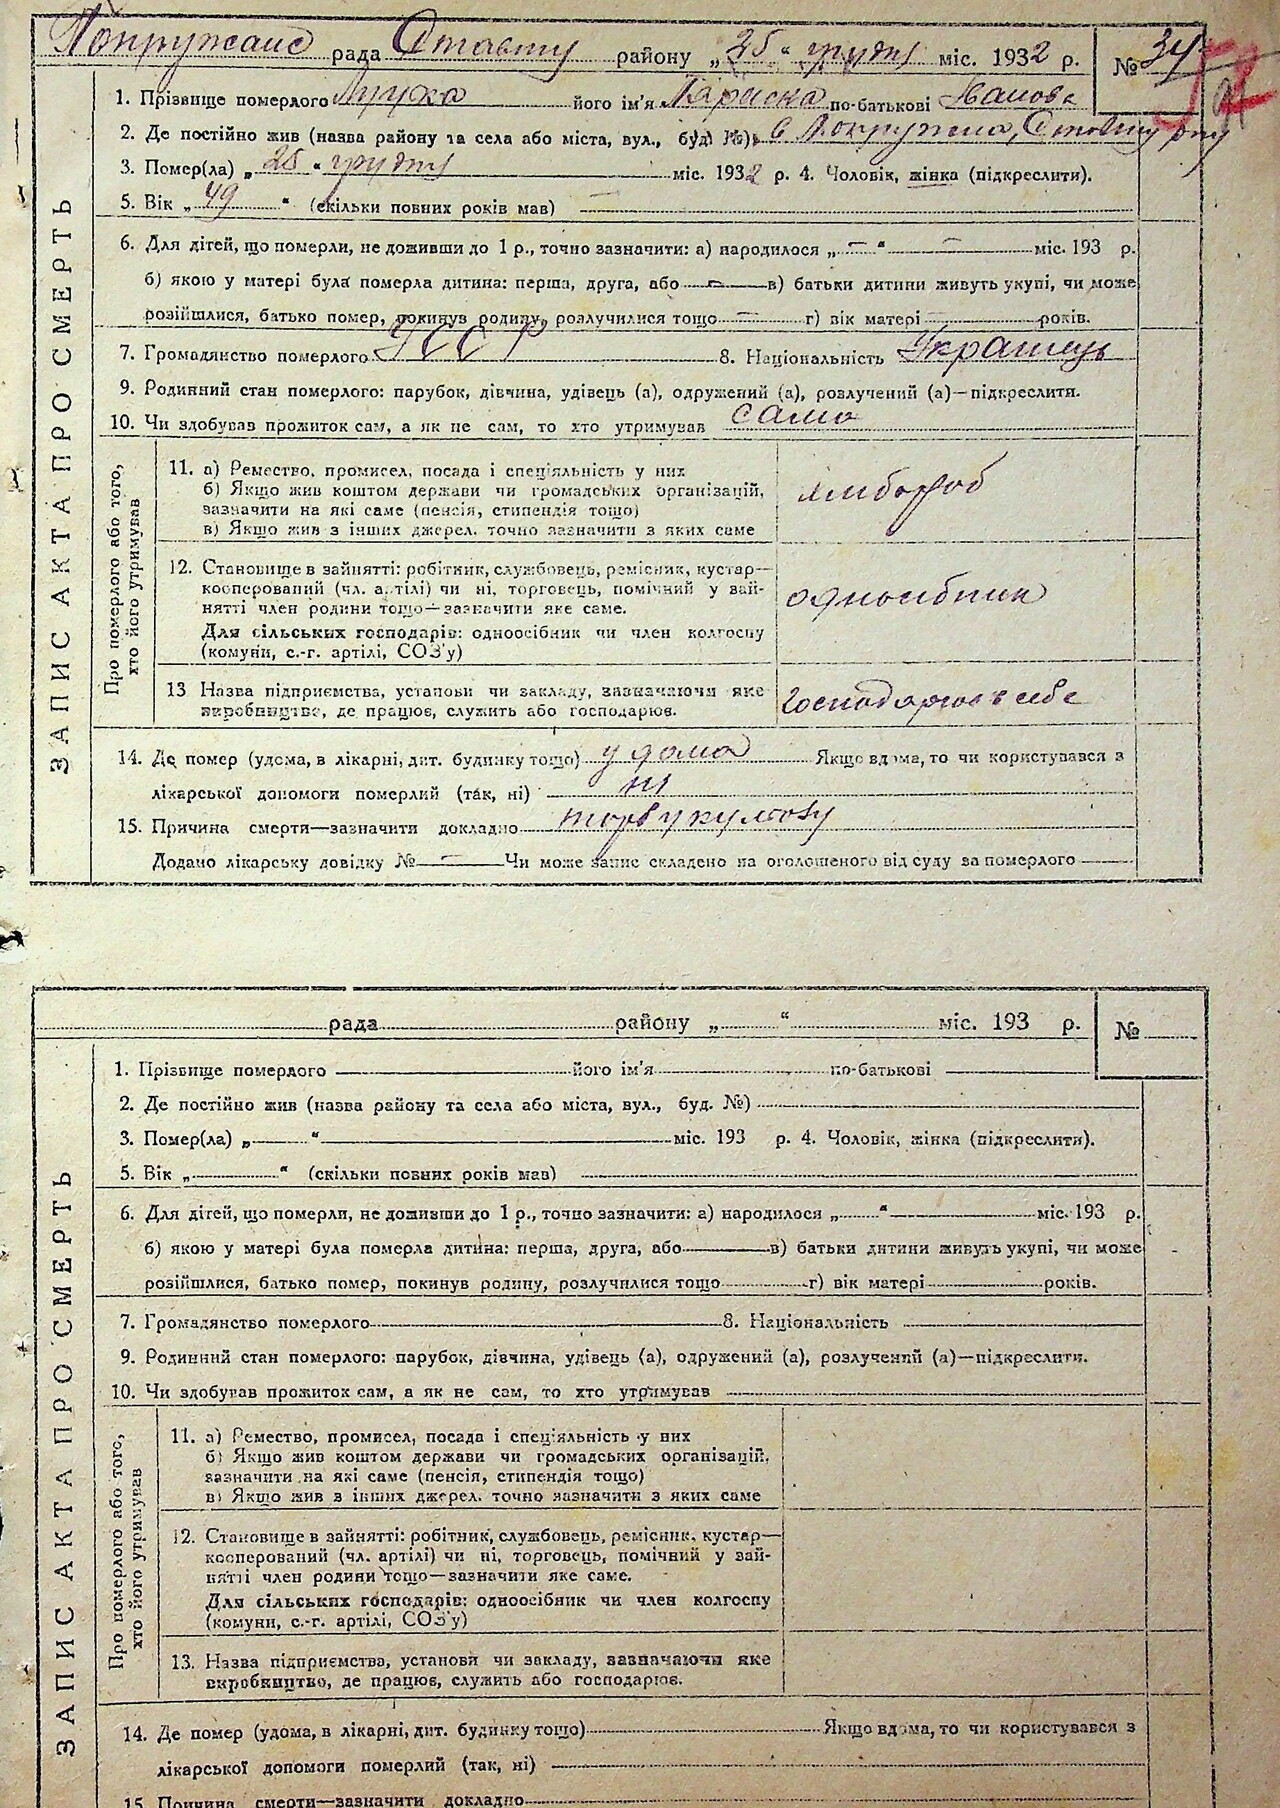 рада Ставищ району „25“ грудня міс. 1932 р. № 34
1. Прізвище померлого його ім'я Параска по-батькові Іванова
2. Де постійно жив (назва району та села або міста, вул., буд. №) с
3. Помер(ла) „25“ грудня міс. 1932 р. 4. Чоловік, жінка (підкреслити).
5. Вік „49“ (скільки повних років мав) —
ЗАПИС АКТА ПРО СМЕРТЬ
6. Для дітей, що померли, не доживши до 1 р., точно зазначити: а) народилося „—“ — міс. 193 р.
б) якою у матері була померла дитина: перша, друга, або — в) батьки дитини живуть укупі, чи може
розійшлися, батько помер, покинув родину, розлучилися тощо — г) вік матері — років.
7. Громадянство померлого УССР 8. Національність Украинець
9. Родинний стан померлого: парубок, дівчина, удівець (а), одружений (а), розлучений (а)—підкреслити.
10. Чи здобував прожиток сам, а як не сам, то хто утримував сама
Про померлого або того,
хто його утримував
11. а) Ремество, промисел, посада і спеціяльність у них
б) Якщо жив коштом держави чи громадських організацій,
зазначити на які саме (пенсія, стипендія тощо)
в) Якщо жив з інших джерел, точно зазначити з яких саме
хлібороб
12. Становище в зайнятті: робітник, службовець, ремісник, кустар—
кооперований (чл. артілі) чи ні, торговець, помічний у зай-
нятті член родини тощо—зазначити яке саме.
Для сільських господарів: одноосібник чи член колгоспу
(комуни, с.-г. артілі, СОЗ'у)
одноосібник
13 Назва підприємства, установи чи закладу, зазначаючи яке
виробництво, де працює, служить або господарює.
14. Де помер (удома, в лікарні, дит. будинку тощо) удома Якщо вдома, то чи користувався з
лікарської допомоги померлий (так, ні) ні
15. Причина смерти—зазначити докладно
Додано лікарську довідку № — Чи може запис складено на оголошеного від суду за померлого
рада району „ “ міс. 193 р. №
1. Прізвище померлого його ім'я по-батькові
2. Де постійно жив (назва району та села або міста, вул., буд. №)
3. Помер(ла) „ “ міс. 193 р. 4. Чоловік, жінка (підкреслити).
5. Вік „ “ (скільки повних років мав)
ЗАПИС АКТА ПРО СМЕРТЬ
6. Для дітей, що померли, не доживши до 1 р., точно зазначити: а) народилося „ “ міс. 193 р.
б) якою у матері була померла дитина: перша, друга, або в) батьки дитини живуть укупі, чи може
розійшлися, батько помер, покинув родину, розлучилися тощо г) вік матері років.
7. Громадянство померлого 8. Національність
9. Родинний стан померлого: парубок, дівчина, удівець (а), одружений (а), розлучений (а)—підкреслити.
10. Чи здобував прожиток сам, а як не сам, то хто утримував
Про померлого або того,
хто його утримував
11. а) Ремество, промисел, посада і спеціяльність у них
б) Якщо жив коштом держави чи громадських організацій,
зазначити на які саме (пенсія, стипендія тощо)
в) Якщо жив з інших джерел, точно зазначити з яких саме
12. Становище в зайнятті: робітник, службовець, ремісник, кустар—
кооперований (чл. артілі) чи ні, торговець, помічний у зай-
нятті член родини тощо—зазначити яке саме.
Для сільських господарів: одноосібник чи член колгоспу
(комуни, с.-г. артілі, СОЗ'у)
13. Назва підприємства, установи чи закладу, зазначаючи яке
виробництво, де працює, служить або господарює.
14. Де помер (удома, в лікарні, дит. будинку тощо) Якщо вдома, то чи користувався з
лікарської допомоги померлий (так, ні)
15. Причина смерти—зазначити докладно